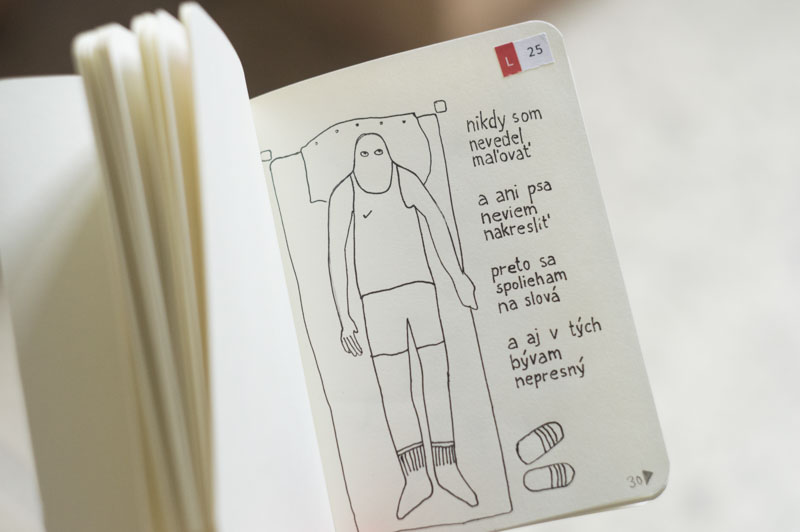 L 25
nikdy som
nevedel
maľovať
a ani psa
neviem
nakresliť
preto sa
spolieham
na slová
a aj v tých
bývam
nepresný
30